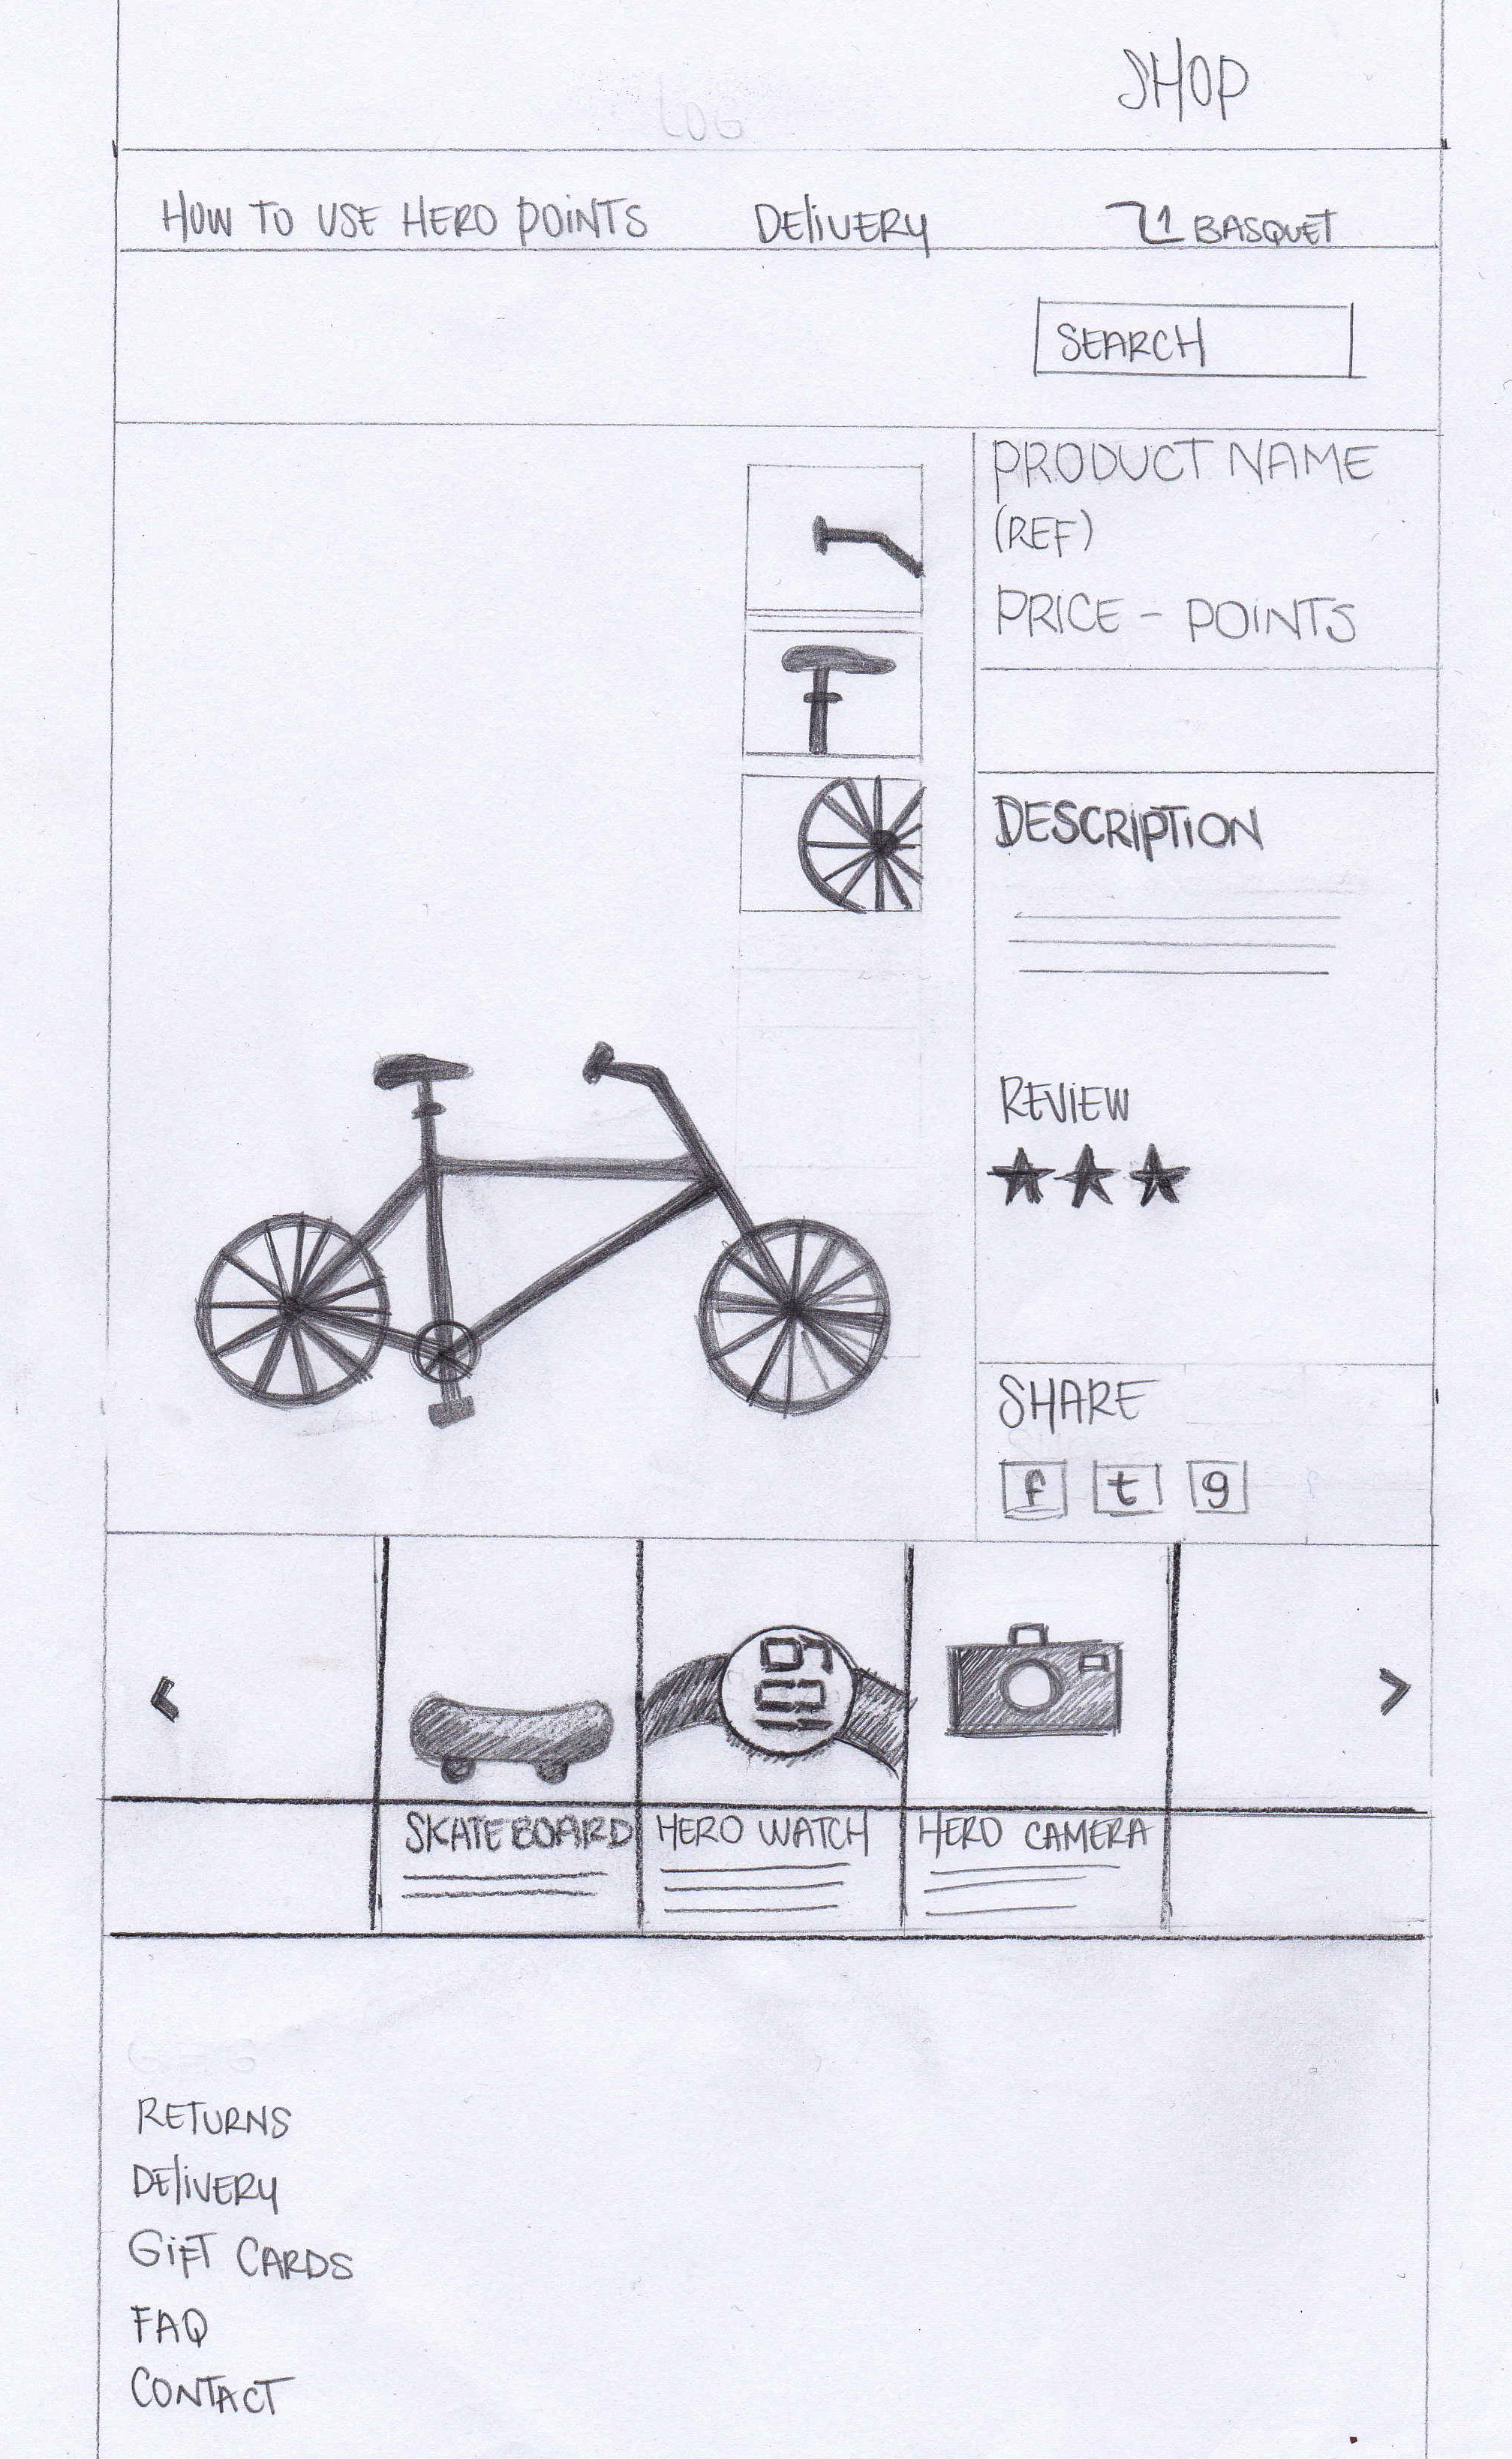 SHOP
LOG
HOW TO USE HERO POINTS DELIVERY 1 BASQUET
SEARCH
PRODUCT NAME
(REF)
PRICE - POINTS
DESCRIPTION
REVIEW
SHARE
f t g
SKATEBOARD HERO WATCH HERO CAMERA
RETURNS
DELIVERY
GIFT CARDS
FAQ
CONTACT